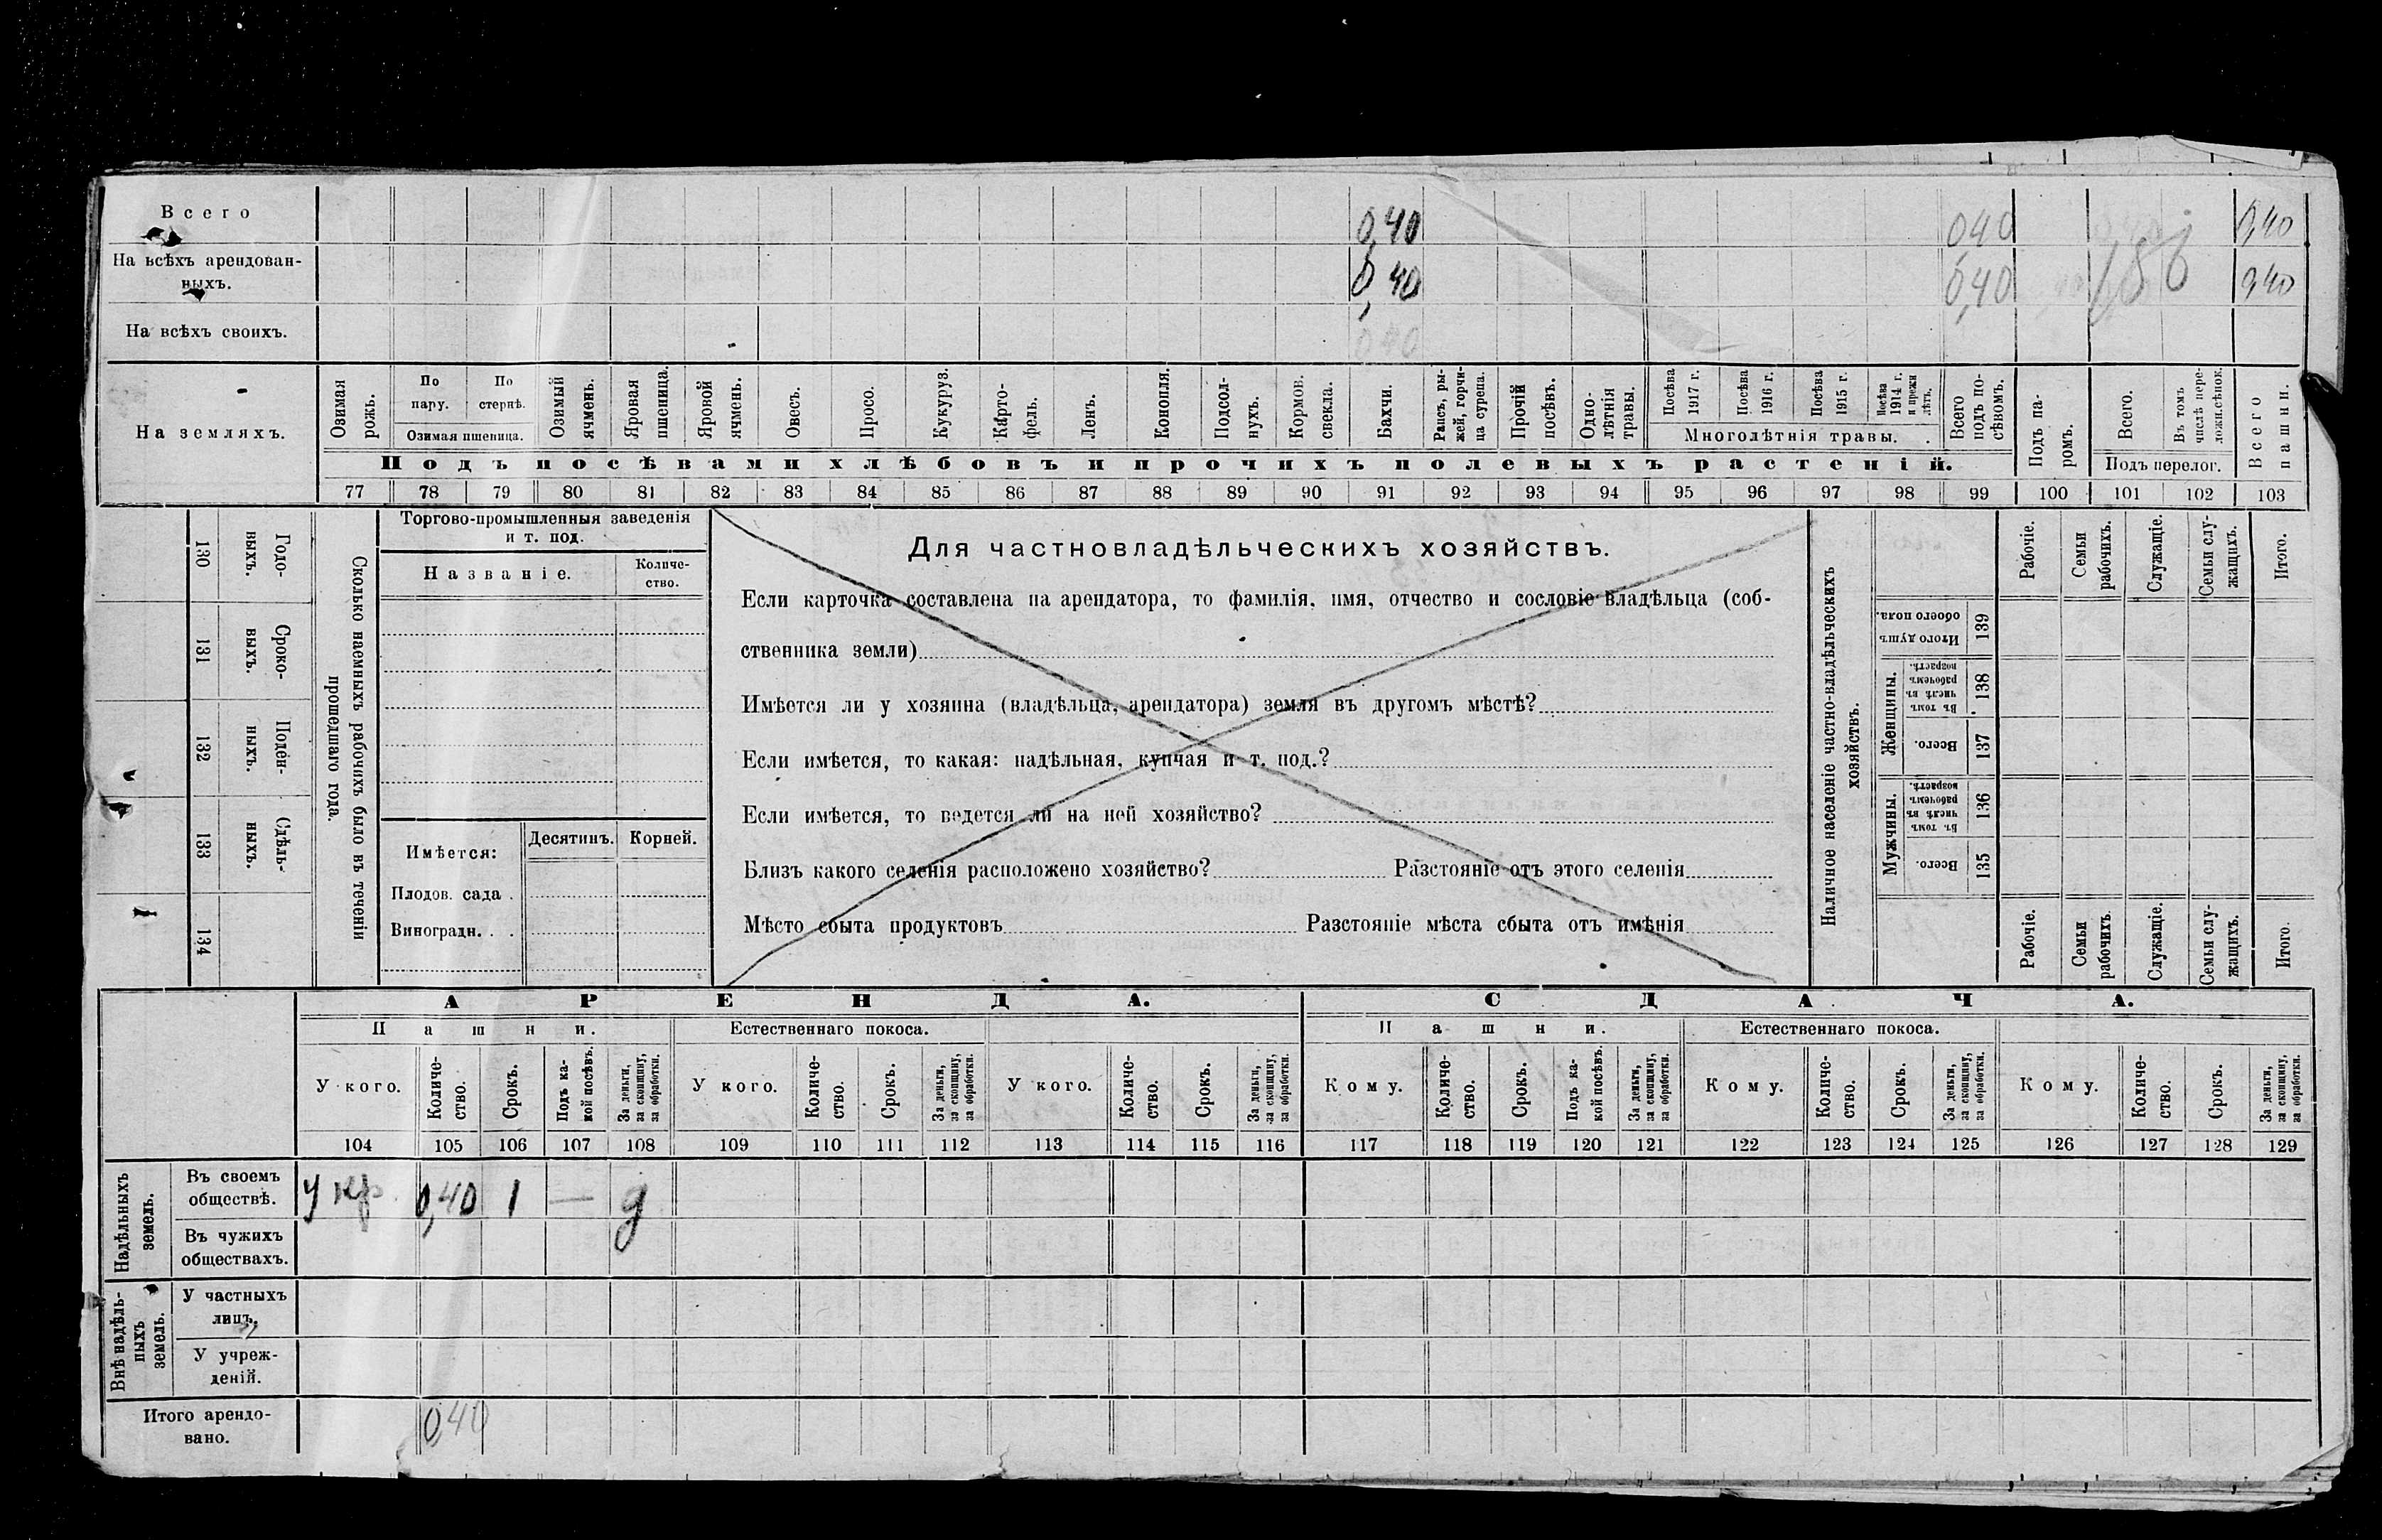 Всего 0,40 040 0,40
На всѣхъ арендован-
ныхъ. 0,40 0,40 0,40
На всѣхъ своихъ. 040
На земляхъ.
Озимая рожь.
По пару.
По стернѣ.
Озимая пшеница.
Озимый ячмень.
Яровая пшеница.
Яровой ячмень.
Овесъ.
Просо.
Кукуруз.
Карто-
фель.
Ленъ.
Конопля.
Подсол-
нухъ.
Кормов.
свекла.
Бахчи.
Рапсъ, ры-
жей, горчи-
ца сурепа.
Прочій посѣвъ.
Одно-
лѣтнія травы.
Посѣва 1917 г.
Посѣва 1916 г.
Посѣва 1915 г.
Посѣва 1914 г. и прежн лѣтъ.
Многолѣтнія травы.
Всего подъ по-
сѣвомъ.
Подъ па-
ромъ.
Всего.
Въ томъ числѣ пере-
ложн.сѣнок.
Подъ перелог.
Всего пашни.
Подъ посѣвами хлѣбовъ и прочихъ полевыхъ растеній.
77 78 79 80 81 82 83 84 85 86 87 88 89 90 91 92 93 94 95 96 97 98 99 100 101 102 103
130 Годо-
выхъ.
131 Сроко-
выхъ.
132 Поден-
ныхъ.
133 Сдѣль-
ныхъ.
134
Сколько наемныхъ рабочихъ было въ теченіи
прошедшаго года.
Торгово-промышленныя заведенія
и т. под.
Названіе.
Количе-
ство.
Имѣется:
Десятинъ. Корней.
Плодов. сада .
Виноградн. . .
Для частновладѣльческихъ хозяйствъ.
Если карточка составлена на арендатора, то фамилія, имя, отчество и сословіе владѣльца (соб-
ственника земли)
Имѣется ли у хозяина (владѣльца, арендатора) земля въ другомъ мѣстѣ?
Если имѣется, то какая: надѣльная, купчая и т. под.?
Если имѣется, то ведется ли на ней хозяйство?
Близъ какого селенія расположено хозяйство? Разстояніе отъ этого селенія
Мѣсто сбыта продуктовъ Разстояніе мѣста сбыта отъ имѣнія
Наличное населеніе частно-владѣльческихъ
хозяйствъ.
Рабочіе.
Семьи рабочихъ.
Служащіе.
Семьи слу-
жащихъ.
Итого.
Итого душъ обоего пола. 139
Женщины.
Въ томъ числѣ въ рабочемъ возрастѣ. 138
Всего. 137
Мужчины.
Въ томъ числѣ въ рабочемъ возрастѣ. 136
Всего. 135
Рабочіе.
Семьи рабочихъ.
Служащіе.
Семьи слу-
жащихъ.
Итого.
АРЕНДА. СДАЧА.
Пашни. Естественнаго покоса. Пашни. Естественнаго покоса.
У кого.
Количе-
ство.
Срокъ.
Подъ ка-
кой посѣвъ.
За деньги, за скопщину, за обработки.
У кого.
Количе-
ство.
Срокъ.
За деньги, за скопщину, за обработки.
У кого.
Количе-
ство.
Срокъ.
За деньги, за скопщину, за обработки.
Кому.
Количе-
ство.
Срокъ.
Подъ ка-
кой посѣвъ.
За деньги, за скопщину, за обработки.
Кому.
Количе-
ство.
Срокъ.
За деньги, за скопщину, за обработки.
Кому.
Количе-
ство.
Срокъ.
За деньги, за скопщину, за обработки.
104 105 106 107 108 109 110 111 112 113 114 115 116 117 118 119 120 121 122 123 124 125 126 127 128 129
Надѣльныхъ земель.
Въ своемъ
обществѣ. У кр. 0,40 1 — д
Въ чужихъ
обществахъ.
Внѣ надѣль-
ныхъ земель.
У частныхъ
лицъ.
У учреж-
деній.
Итого арендо-
вано. 0,40